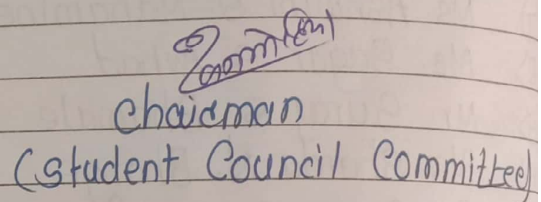 Chairman
(Student Council Committee)